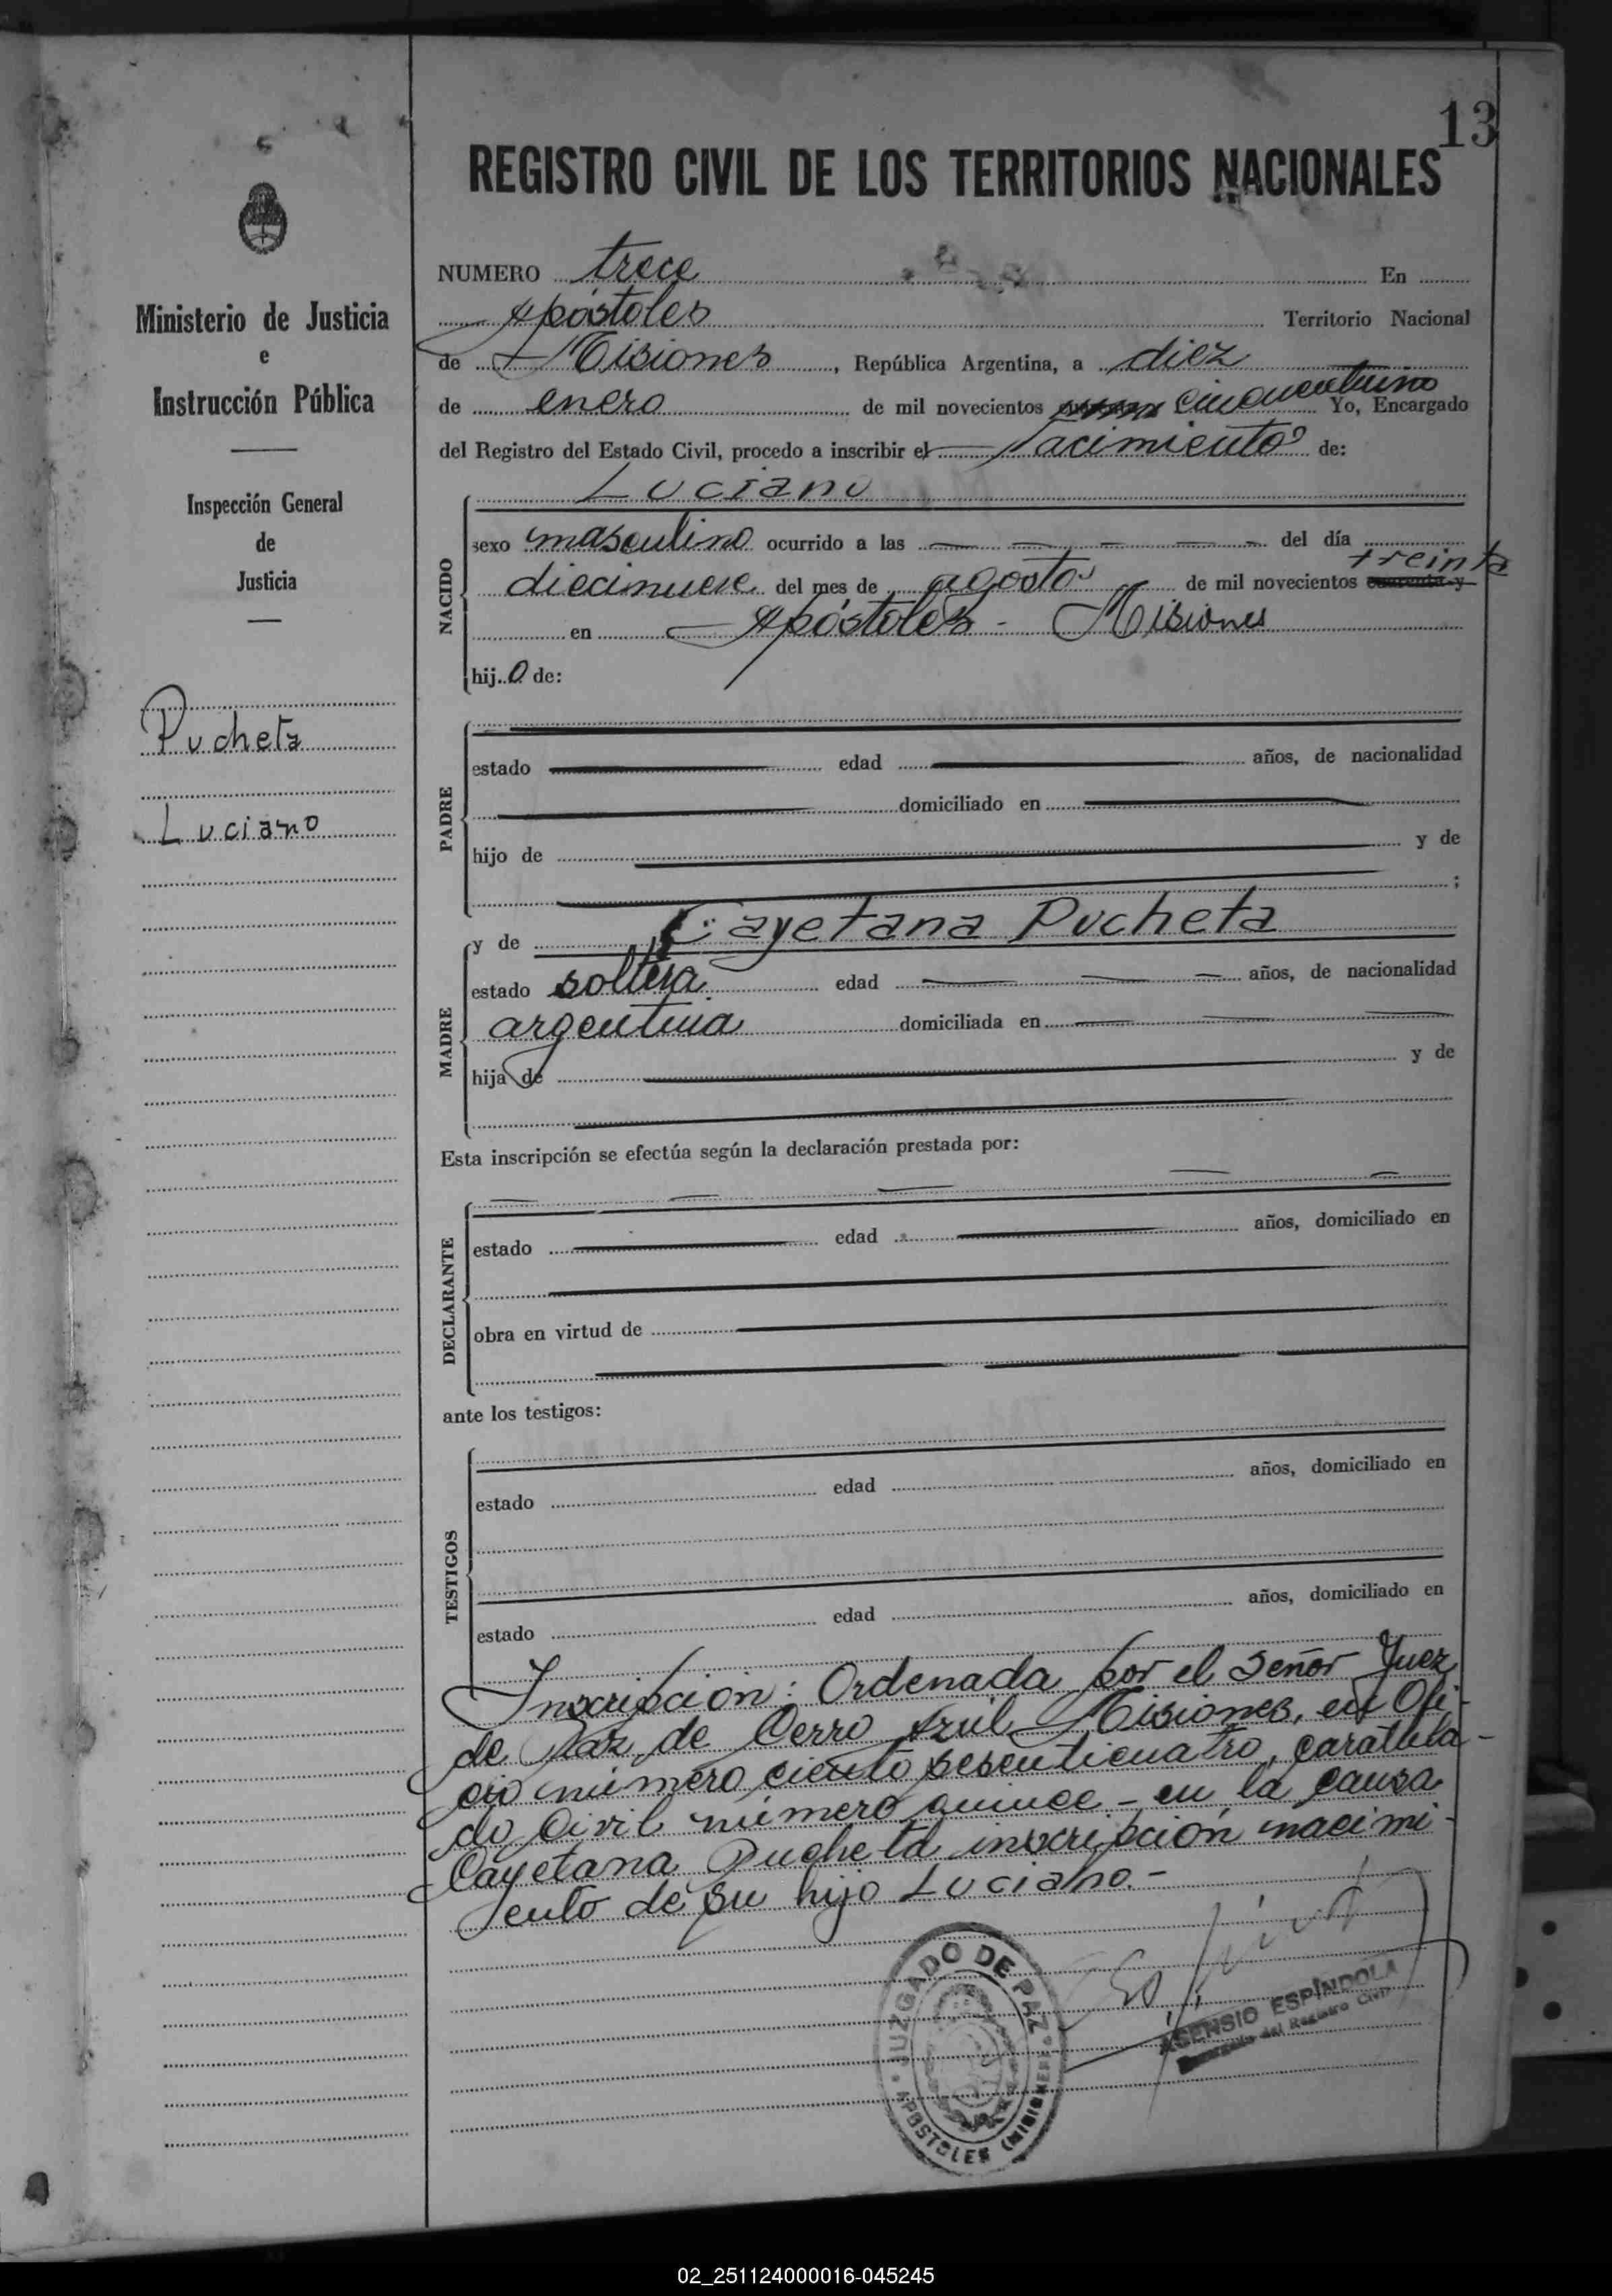 13
REGISTRO CIVIL DE LOS TERRITORIOS NACIONALES
NUMERO trece En
Apóstoles Territorio Nacional
de Misiones, República Argentina, a diez
de enero de mil novecientos cincuentiuno Yo, Encargado
del Registro del Estado Civil, procedo a inscribir el Nacimiento de:
Luciano
NACIDO
sexo masculino ocurrido a las del día
diecinueve del mes de agosto de mil novecientos treinta cuarenta y
en Apóstoles - Misiones
hijo de:
PADRE
estado edad años, de nacionalidad
domiciliado en
hijo de y de
;
MADRE
y de Cayetana Pucheta
estado soltera edad años, de nacionalidad
argentina domiciliada en
hija de y de
Esta inscripción se efectúa según la declaración prestada por:
DECLARANTE
estado edad años, domiciliado en
obra en virtud de
ante los testigos:
TESTIGOS
estado edad años, domiciliado en
estado edad años, domiciliado en
Inscripción: Ordenada por el Señor Juez
de Paz de Cerro Azul Misiones, en Ofi-
cio número ciento sesenticuatro, caratula-
do Civil número quince - en la causa
Cayetana Pucheta inscripción nacimi-
ento de su hijo Luciano.-
JUZGADO DE PAZ
APOSTOLES (MISIONES)
ASENSIO ESPÍNDOLA
Encargado del Registro Civil
Ministerio de Justicia
e
Instrucción Pública
Inspección General
de
Justicia
Pucheta
Luciano
02_251124000016-045245